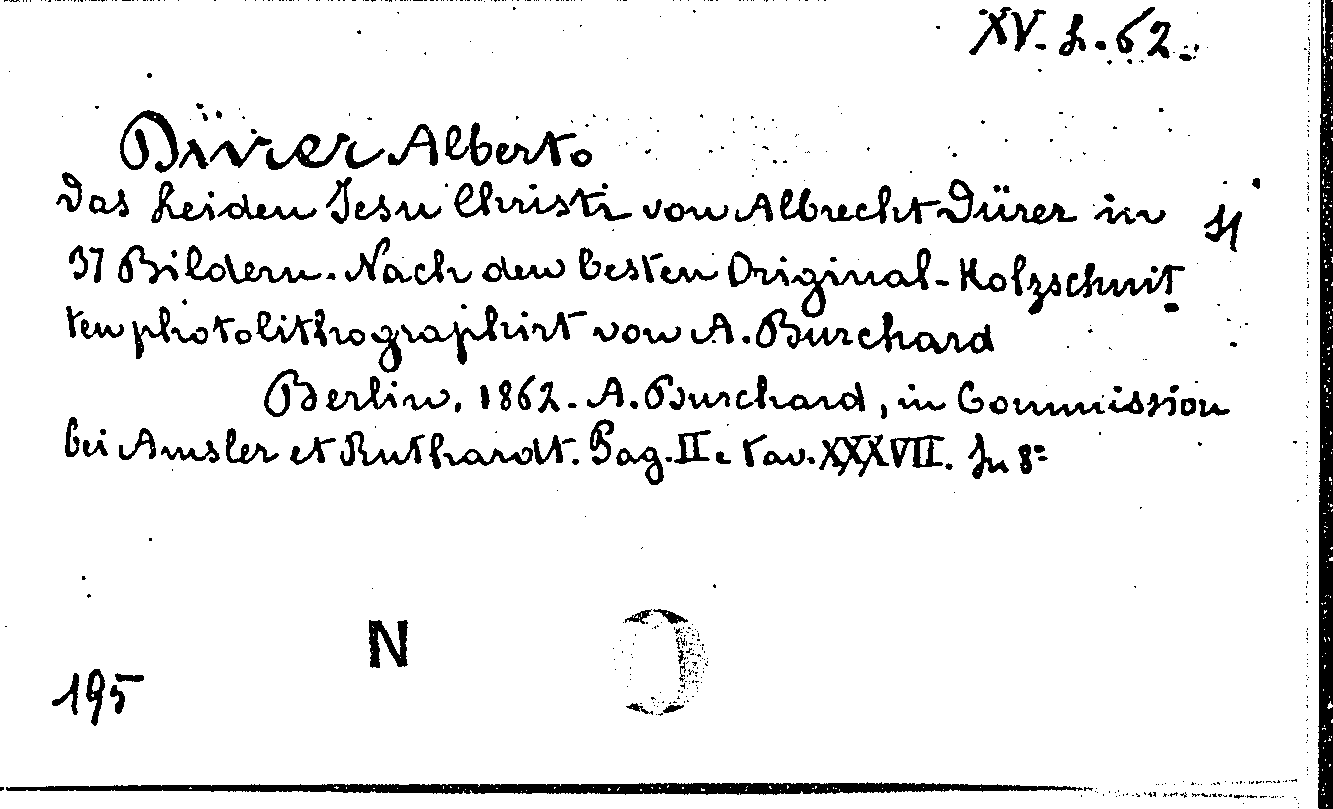 XV. L. 62.
Dürer Alberto
Das Leiden Jesu Christi von Albrecht Dürer in
37 Bildern. Nach den besten Original-Holzschnit
ten photolithographirt von A. Burchard
Berlin, 1862. A. Burchard, in Commission
bei Amsler et Ruthardt. Pag. II e tav. XXXVII. In 8º
N
195